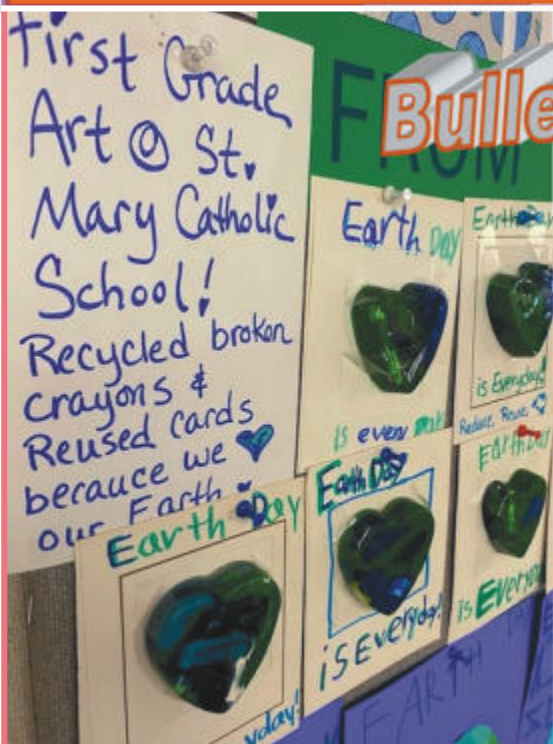 First Grade
Art @ St.
Mary Catholic
School!
Recycled broken
crayons &
Reused cards
berauce we
our Earth
FROM
Bulle
Earth Day
is every
Earth Day
is Everyday!
Reduce, Reuse
Earth Day
is Everyday!
Earth Day
is Every
Earth Day
yday!
EARTH